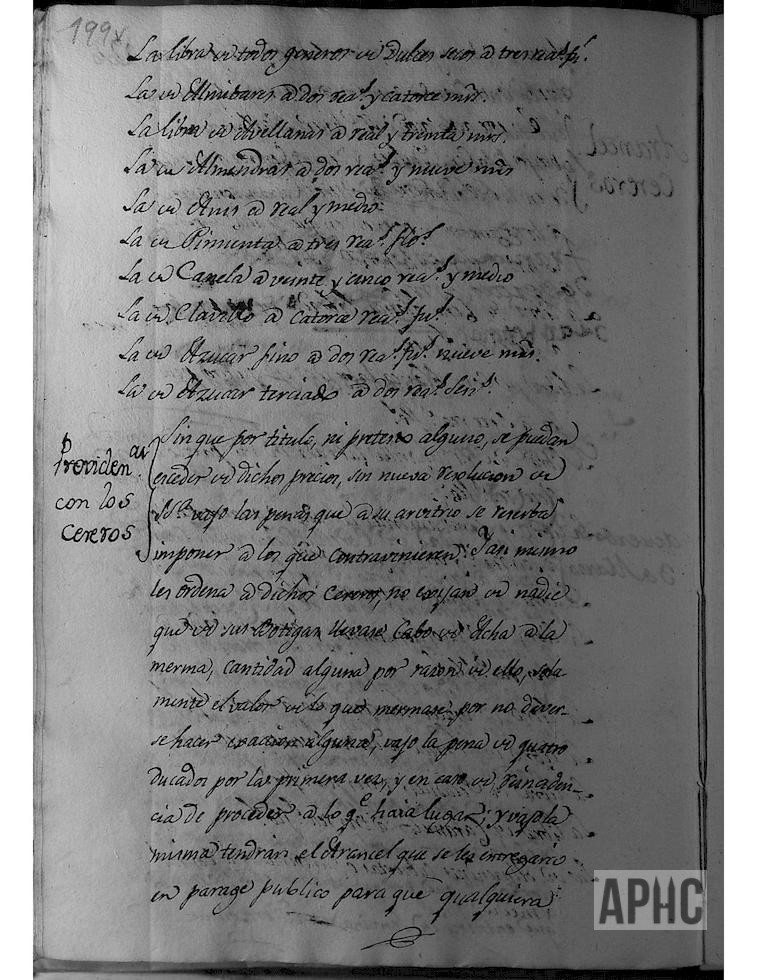 199v
La libra de todos generos de Dulces secos a tres rea.s fu.s
La de Almibares a dos rea.s y catorce mrs.
La libra de Avellanas a real y treinta mrs.
La de Almendras a dos rea.s y nueve mrs
La de Anis a real y medio.
La de Pimienta a tres rea.s
La de Canela a veinte y cinco rea.s y medio
La de Clavillo a catorce rea.s fu.s
La de Azucar fino a dos rea.s fu.s nueve mrs.
La de Azucar terciado a dos rea.s
Providen.as
con los
cereros
Sin que por titulo, ni pretexto alguno, se puedan
exceder de dichos precios, sin nueva resolucion de
vajo las penas que a su arvitrio se reserba
imponer a los que contravinieren. Y asi mismo
les ordena a dichos Cereros, no exijan de nadie
que de sus Botigas llevase Cabo de Acha a la
merma, cantidad alguna por razon de ello, sola-
mente el valor de lo que mermase, por no dever-
se hacer exaccion alguna, vajo la pena de quatro
ducados por la primera vez, y en caso de reinciden-
cia de proceder a lo q.e haia lugar; y vajo la
misma tendran el Arancel que se les entregara
en parage publico para que qualquiera
APHC